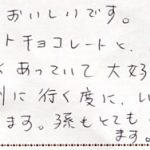 おいしいです。
トチョコレートと、
くあっていて 大好
別に 行く度に、い
ます。孫もとても
ます。